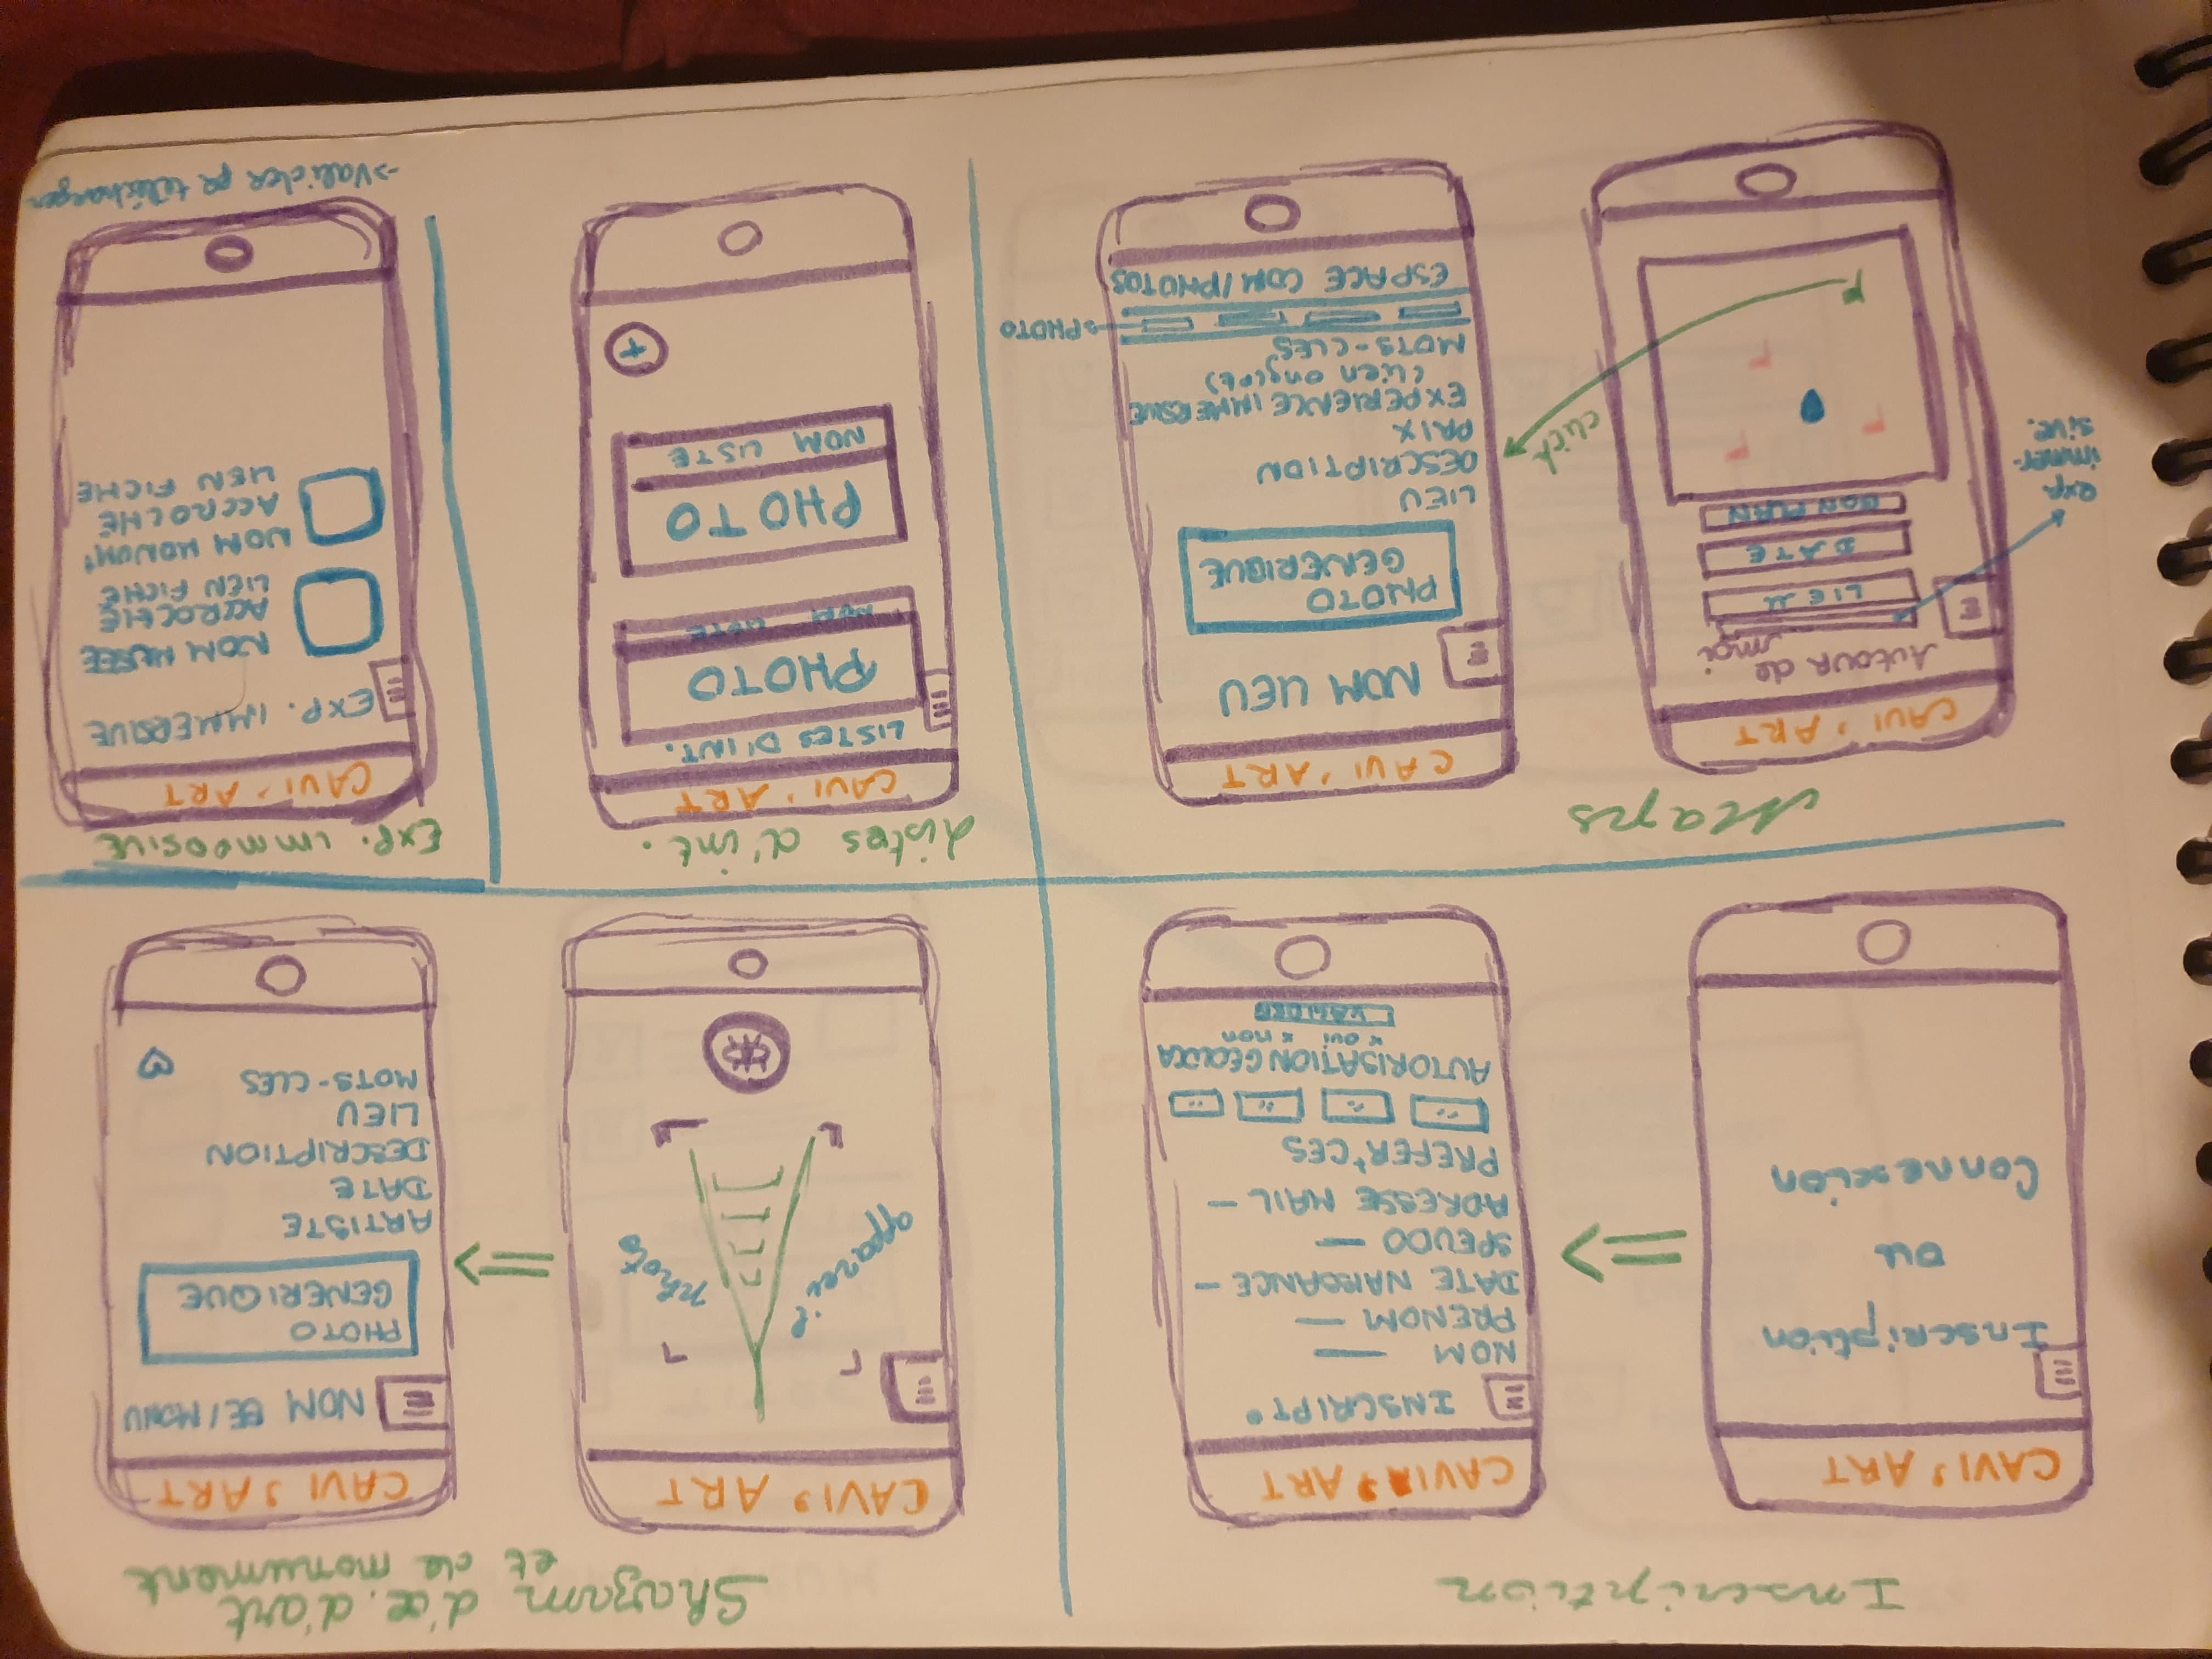 Inscription
CAVI' ART
Inscription
ou
Connexion
CAVI' ART
INSCRIPT°
NOM
PRENOM
DATE NAISSANCE
SPEUDO
ADRESSE MAIL
PREFER+CES
AUTORISATION GEOLOCA
x oui x non
VALIDER
Shazam d'œ. d'art
et de monument
CAVI' ART
appareil
photo
CAVI 'ART
NOM OE/MONU
PHOTO
GENERIQUE
ARTISTE
DATE
DESCRIPTION
LIEU
MOTS-CLES
Maps
CAVI 'ART
Autour de
moi
LIEU
DATE
BON PLAN
exp.
immer-
sive.
click
CAVI 'ART
NOM LIEU
PHOTO
GENERIQUE
LIEU
DESCRIPTION
PRIX
EXPERIENCE IMMERSIVE
(lien onglet)
MOTS-CLES
PHOTO
ESPACE COM/PHOTOS
Listes d'int.
CAVI' ART
LISTES D'INT.
PHOTO
NOM LISTE
PHOTO
NOM LISTE
+
Exp. immersive
CAVI' ART
EXP. IMMERSIVE
NOM MUSEE
ACCROCHE
LIEN FICHE
NOM MONUMT
ACCROCHE
LIEN FICHE
->Valider pr télécharger